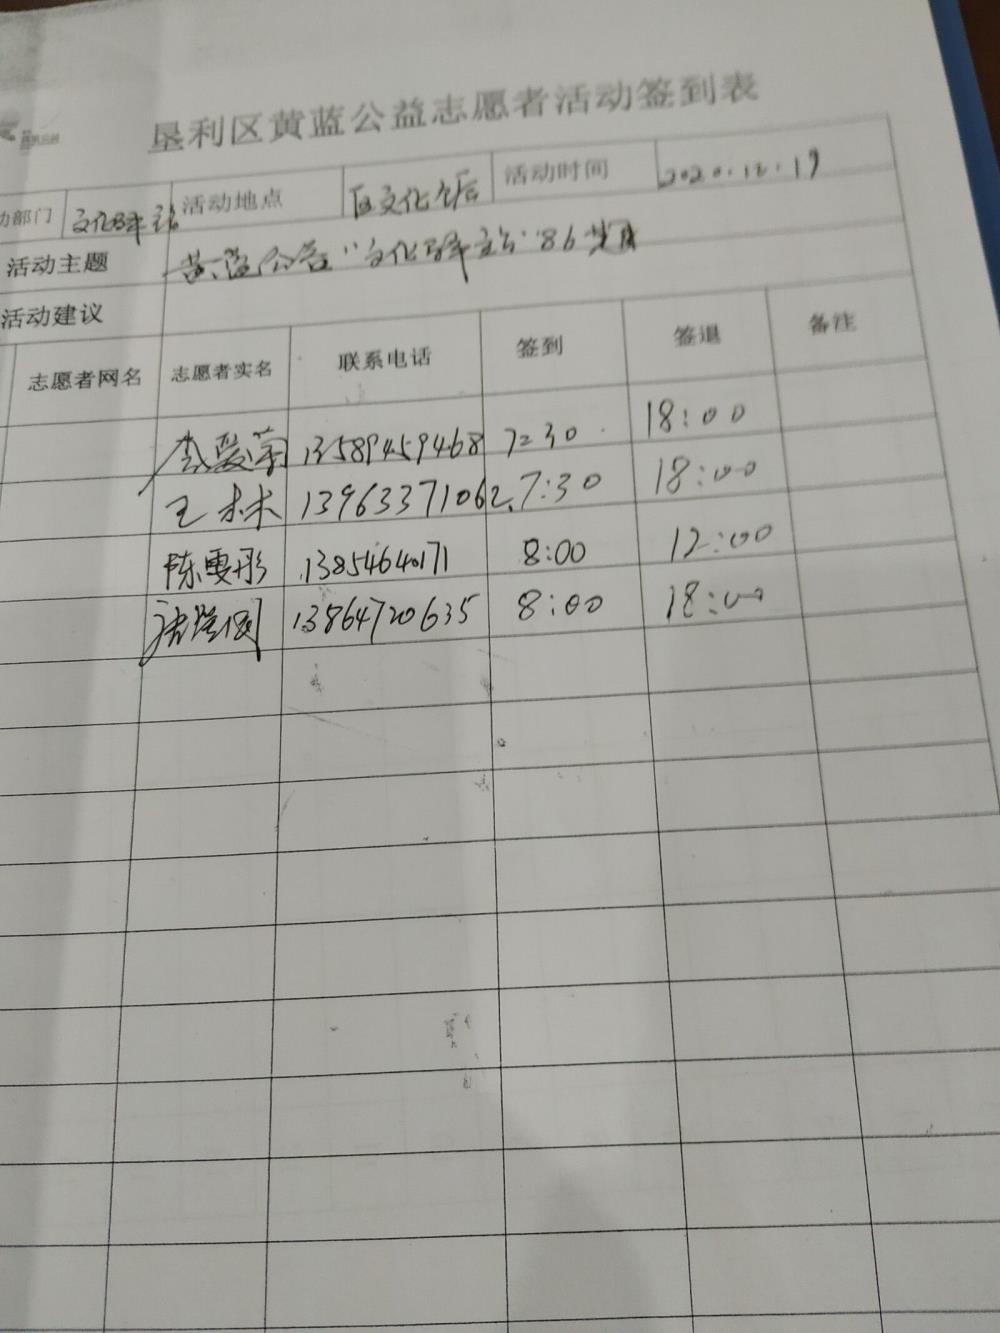 垦利区黄蓝公益志愿者活动签到表
动部门 文化驿站 活动地点 区文化 活动时间 2020.12.19
活动主题 黄蓝公益“文化驿站”86期
活动建议
志愿者网名 志愿者实名 联系电话 签到 签退 备注
李爱菊 13589459468 7:30 18:00
王林 13963371062 7:30 18:00
陈雯彤 13854640171 8:00 12:00
13864720635 8:00 18:00